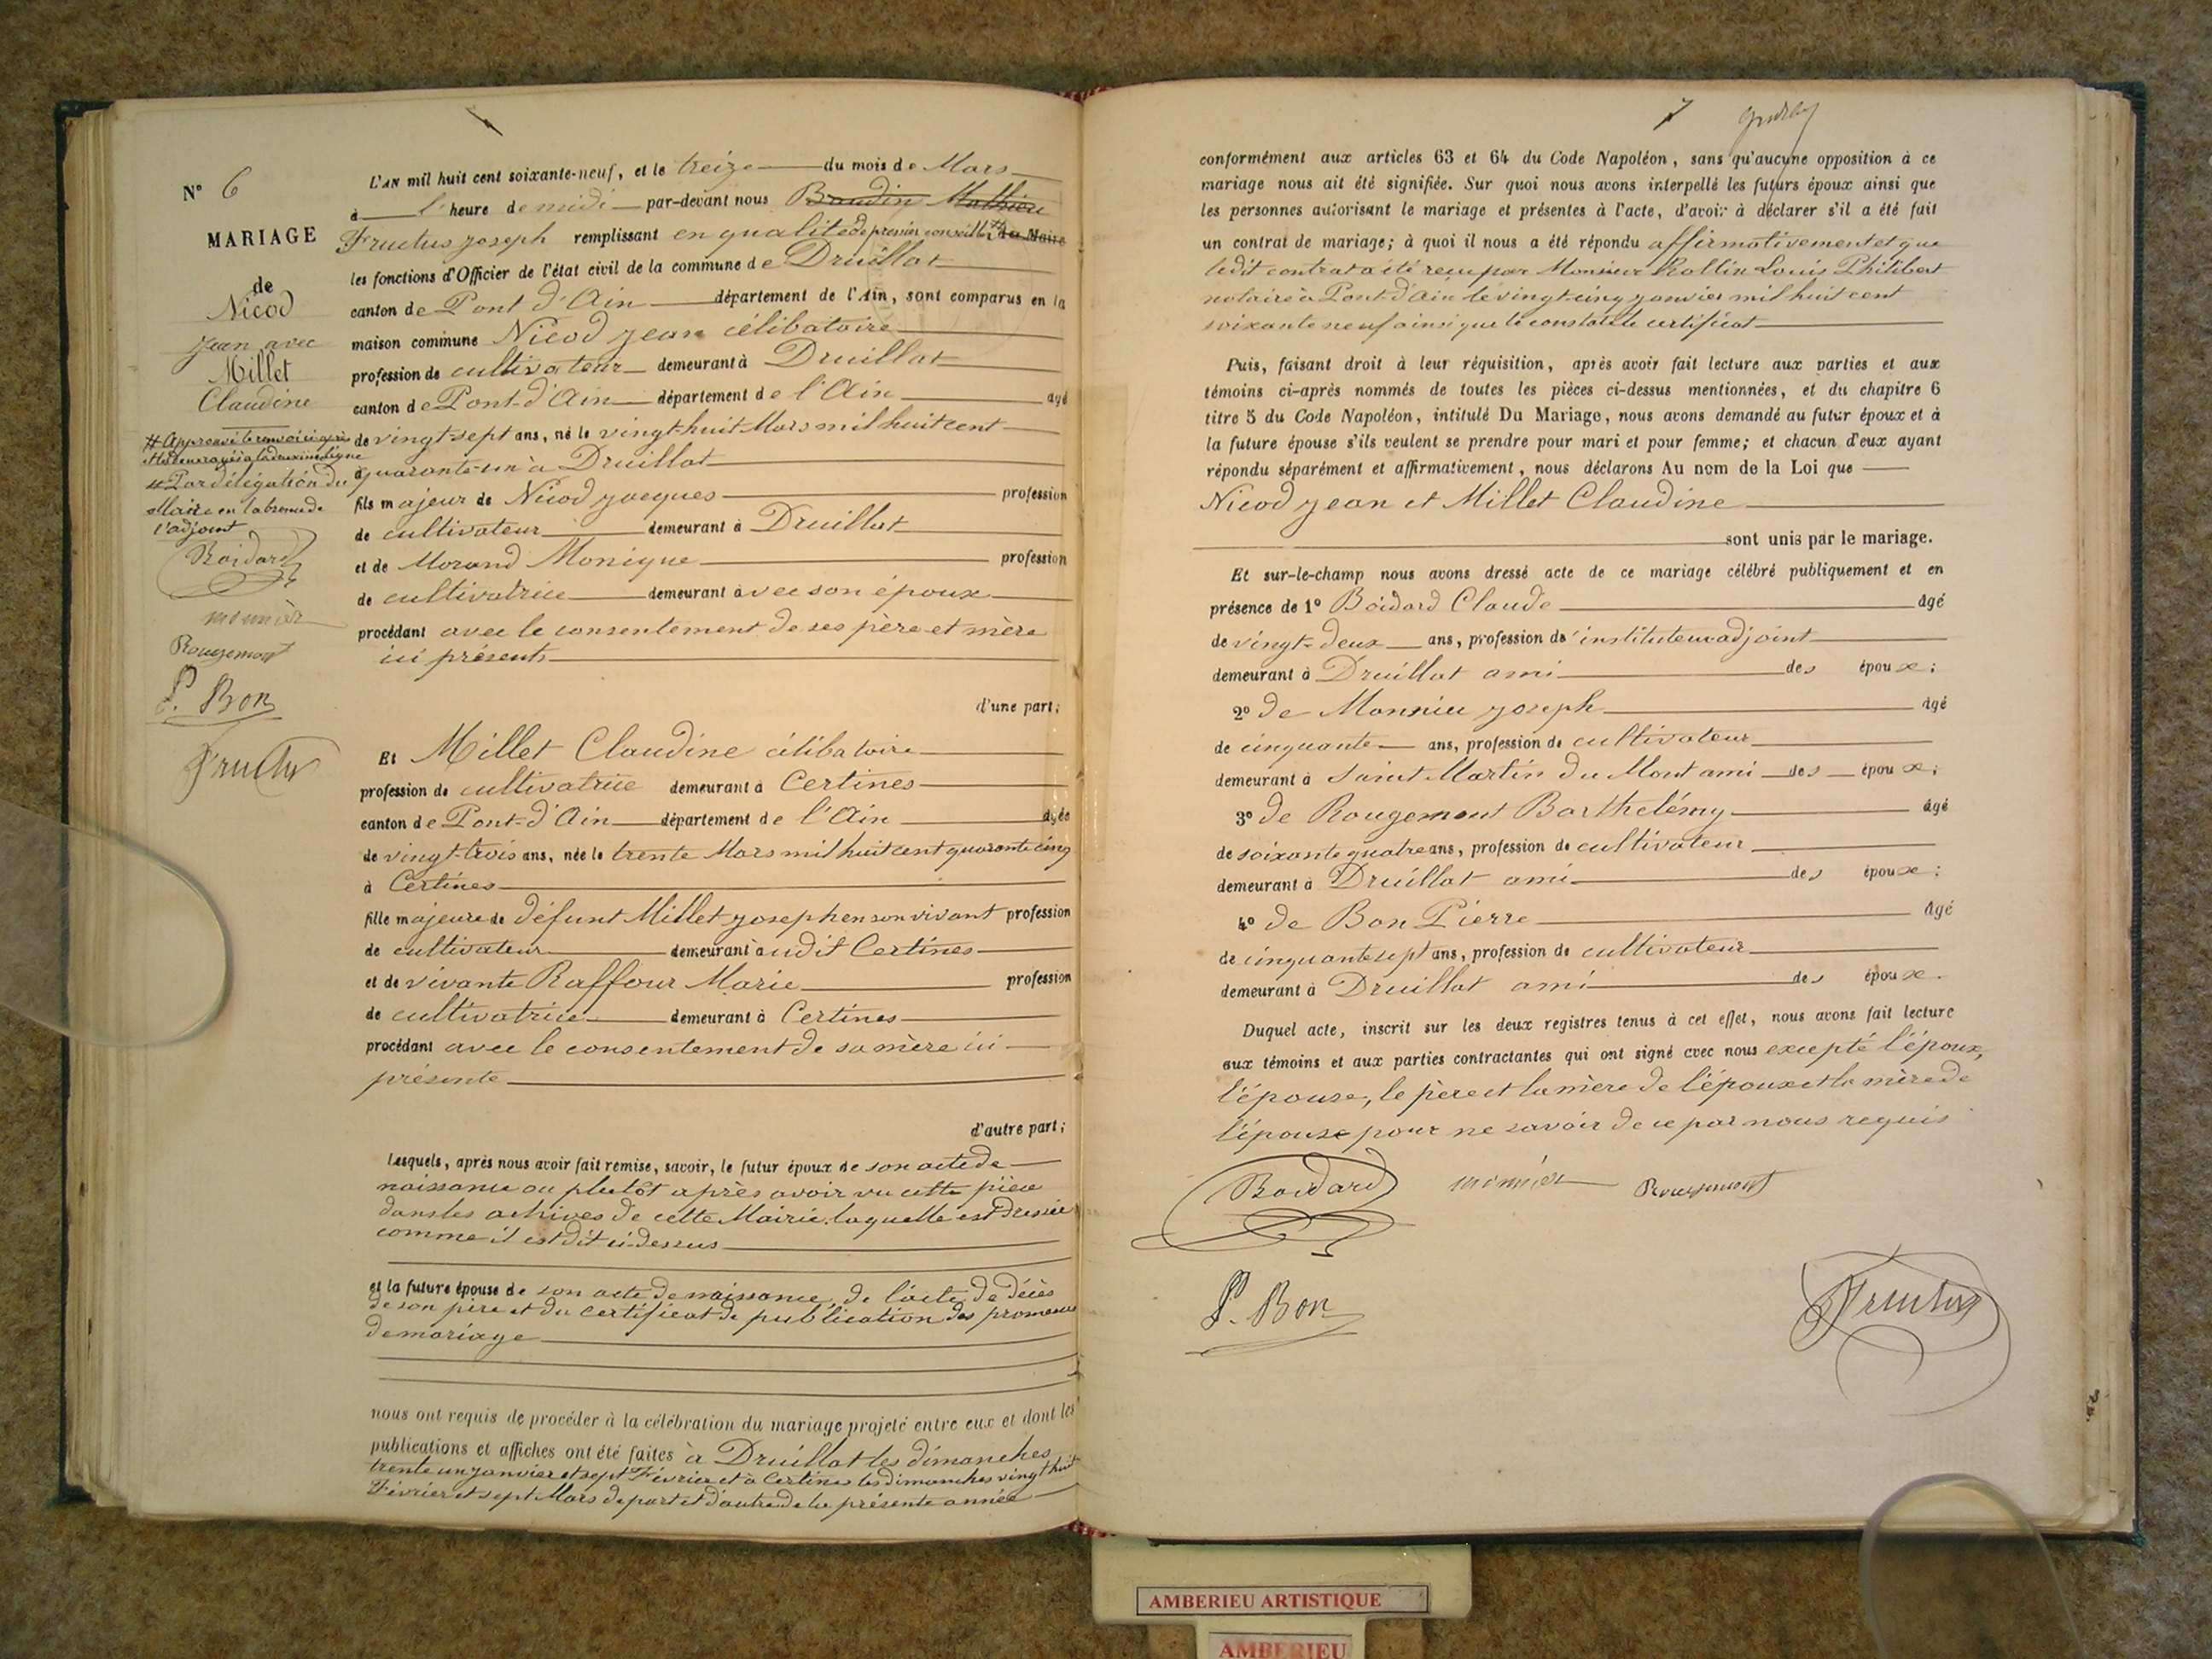 N° 6
MARIAGE
de
Nicod
Jean avec
Millet
Claudine
# Approuvé le renvoi ci-après
# Par délégation du
Maire en l'absence de
l'adjoint
Boidard
monnier
Rougemont
P. Bon
Fructus
L'AN mil huit cent soixante-neuf, et le treize du mois de Mars
à l'heure de midi par-devant nous Baudin Mathieu
Fructus Joseph remplissant en qualité de premier conseiller # du Maire
les fonctions d'Officier de l'état civil de la commune de Druillat
canton de Pont d'Ain département de l'Ain, sont comparus en la
maison commune Nicod Jean célibataire
profession de cultivateur demeurant à Druillat
canton de Pont-d'Ain département de l'Ain âgé
de vingt-sept ans, né le vingt-huit Mars mil huit cent
quarante-un à Druillat
fils majeur de Nicod Jacques profession
de cultivateur demeurant à Druillat
et de Morand Monique profession
de cultivatrice demeurant avec son époux
procédant avec le consentement de ses père et mère
ici présents
d'une part;
Et Millet Claudine célibataire
profession de cultivatrice demeurant à Certines
canton de Pont-d'Ain département de l'Ain âgée
de vingt-trois ans, née le trente Mars mil huit cent quarante cinq
à Certines
fille majeure de défunt Millet Joseph en son vivant profession
de cultivateur demeurant audit Certines
et de vivante Raffour Marie profession
de cultivatrice demeurant à Certines
procédant avec le consentement de sa mère ici
présente
d'autre part;
Lesquels, après nous avoir fait remise, savoir, le futur époux de son acte de
naissance ou plutôt après avoir vu cette pièce
dans les achives de cette Mairie, laquelle est dressée
comme il est dit ci-dessus
et la future épouse de son acte de naissance, de l'acte de décès
de son père et du certificat de publication des promesses
de mariage
nous ont requis de procéder à la célébration du mariage projeté entre eux et dont les
publications et affiches ont été faites à Druillat les dimanches
trente un Janvier et sept Février et à Certines les dimanches vingt huit
Février et sept Mars de part et d'autre de la présente année
7
conformément aux articles 63 et 64 du Code Napoléon, sans qu'aucune opposition à ce
mariage nous ait été signifiée. Sur quoi nous avons interpellé les futurs époux ainsi que
les personnes autorisant le mariage et présentes à l'acte, d'avoir à déclarer s'il a été fait
un contrat de mariage; à quoi il nous a été répondu affirmativement et que
ledit contrat a été reçu par Monsieur Rollin Louis Philibert
notaire à Pont-d'Ain le vingt-cinq Janvier mil huit cent
soixante neuf ainsi que le constate le certificat
Puis, faisant droit à leur réquisition, après avoir fait lecture aux parties et aux
témoins ci-après nommés de toutes les pièces ci-dessus mentionnées, et du chapitre 6
titre 5 du Code Napoléon, intitulé Du Mariage, nous avons demandé au futur époux et à
la future épouse s'ils veulent se prendre pour mari et pour femme; et chacun d'eux ayant
répondu séparément et affirmativement, nous déclarons Au nom de la Loi que
Nicod Jean et Millet Claudine
sont unis par le mariage.
Et sur-le-champ nous avons dressé acte de ce mariage célébré publiquement et en
présence de 1° Boidard Claude âgé
de vingt-deux ans, profession d'instituteur adjoint
demeurant à Druillat ami des époux;
2° de Monnier Joseph âgé
de cinquante ans, profession de cultivateur
demeurant à Saint Martin du Mont ami des époux;
3° de Rougemont Barthelémy âgé
de soixante quatre ans, profession de cultivateur
demeurant à Druillat ami des époux;
4° de Bon Pierre âgé
de cinquante sept ans, profession de cultivateur
demeurant à Druillat ami des époux.
Duquel acte, inscrit sur les deux registres tenus à cet effet, nous avons fait lecture
aux témoins et aux parties contractantes qui ont signé avec nous excepté l'époux,
l'épouse, le père et la mère de l'époux et la mère de
l'épouse pour ne savoir de ce par nous requis
Boidard monnier Rougemont
P. Bon Fructus
AMBERIEU ARTISTIQUE
AMBERIEU